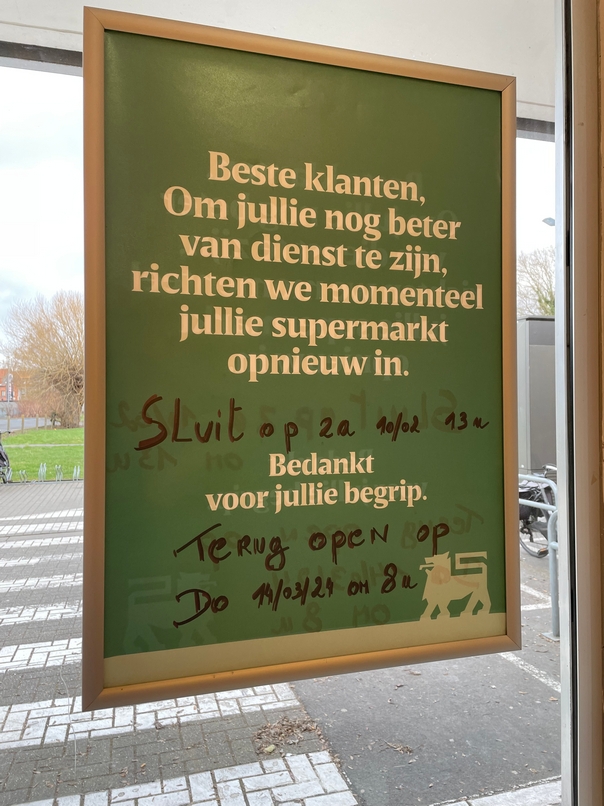 Beste klanten,
Om jullie nog beter
van dienst te zijn,
richten we momenteel
jullie supermarkt
opnieuw in.
Sluit op za 10/02 13u
Bedankt
voor jullie begrip.
Terug open op
Do 14/03/24 om 8u